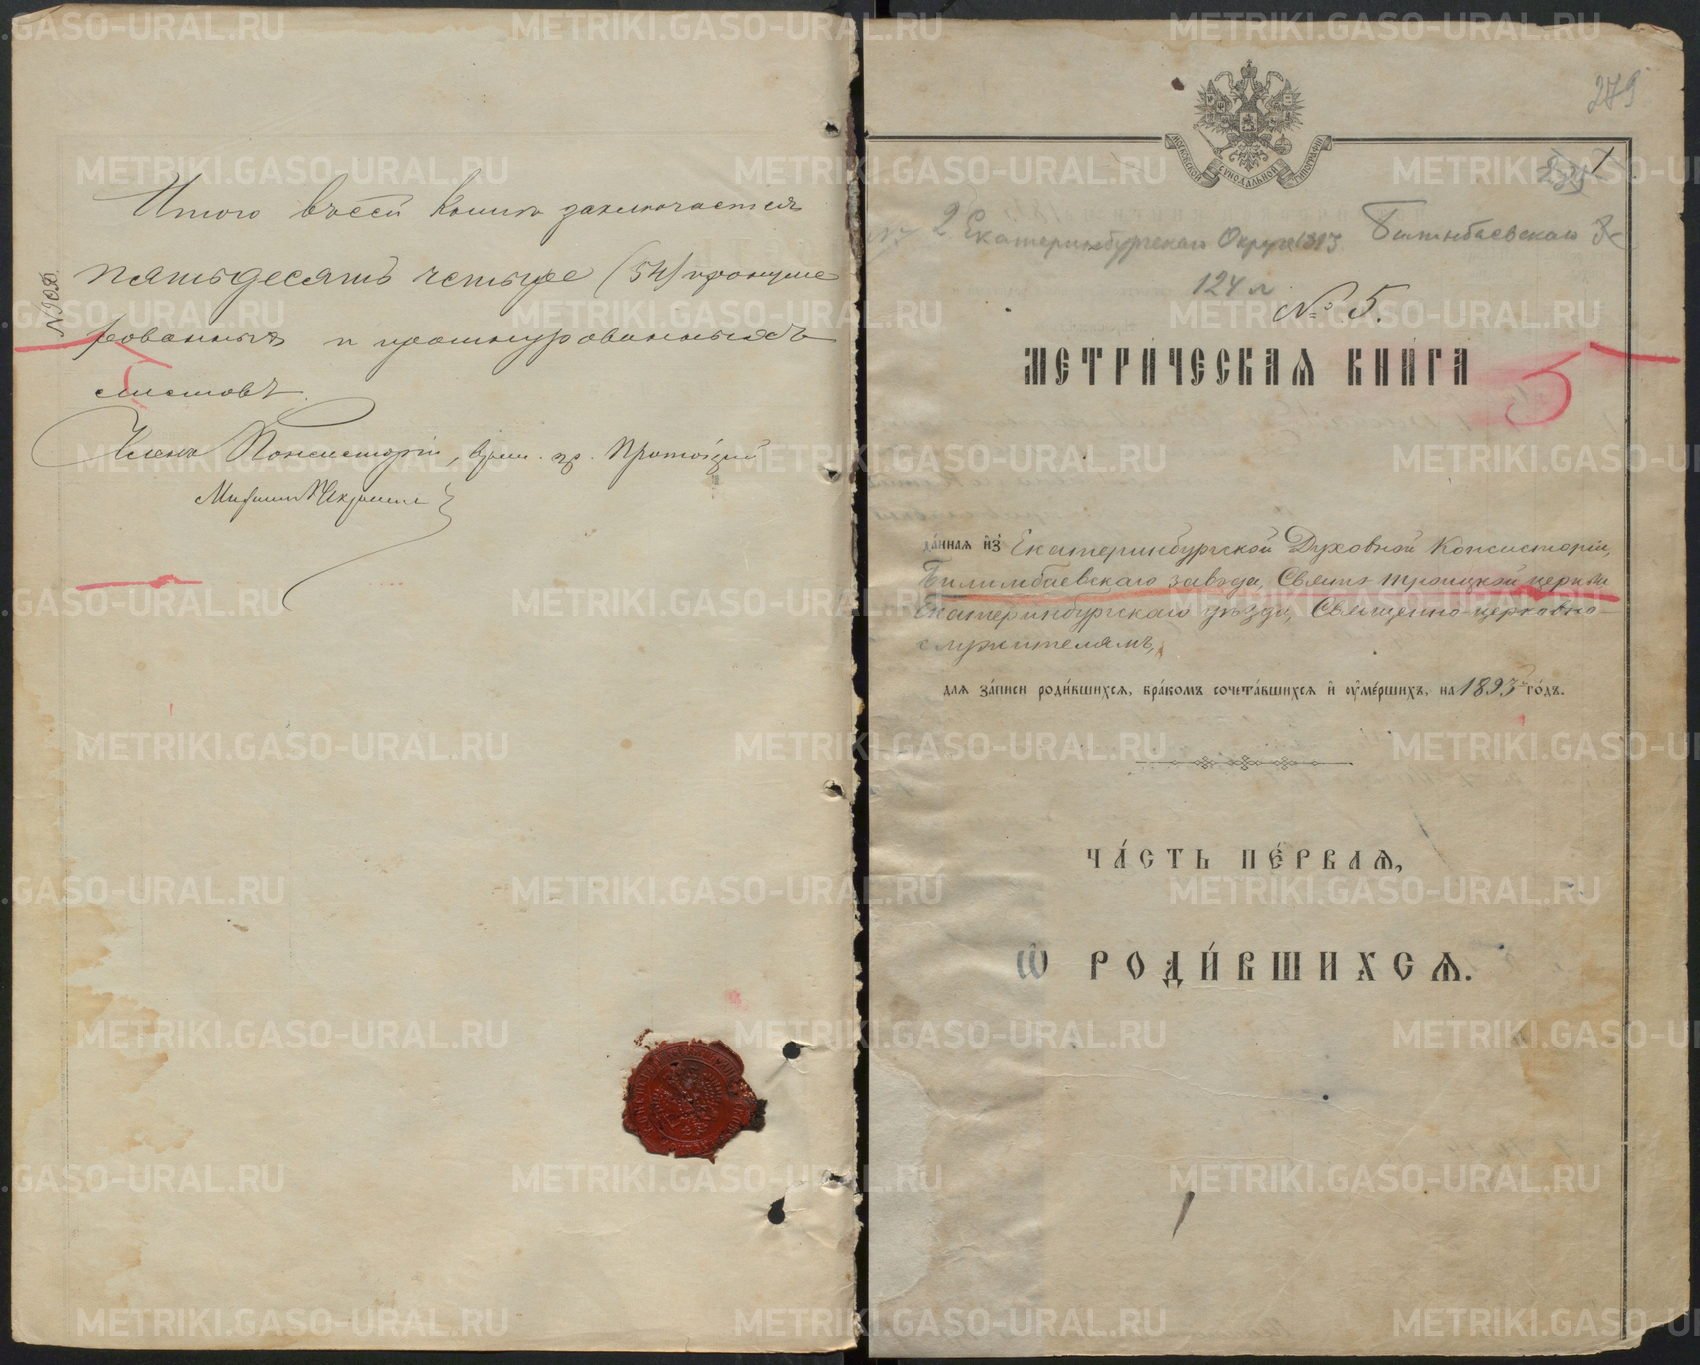 Итого въ сей книгѣ заключается
пятьдесятъ четыре (54) пронуме
рованныхъ и прошнурованныхъ
листовъ.
Членъ Консисторіи, Протоіерей
279
1
МОСКОВСКОЙ СѴНОДАЛЬНОЙ ТИПОГРАФІИ
2 Екатеринбургскаго Округа 1893 Билимбаевскаго
124 л
№ 5.
МЕТРИ́ЧЕСКАѦ КНИ́ГА
5
да́ннаѧ и҆з̾ Екатеринбургской Духовной Консисторіи,
Билимбаевскаго завода, Свято-Троицкой церкви
Екатеринбургскаго уѣзда, Священно-церковно-
служителямъ,
длѧ за́писи роди́вшихсѧ, бра́комъ сочета́вшихсѧ и҆ ᲂу҆ме́ршихъ, на 1893 го́дъ.
ЧА́СТЬ ПЕ́РВАѦ,
Ѡ҆ РОДИ́ВШИХСѦ.
METRIKI.GASO-URAL.RU